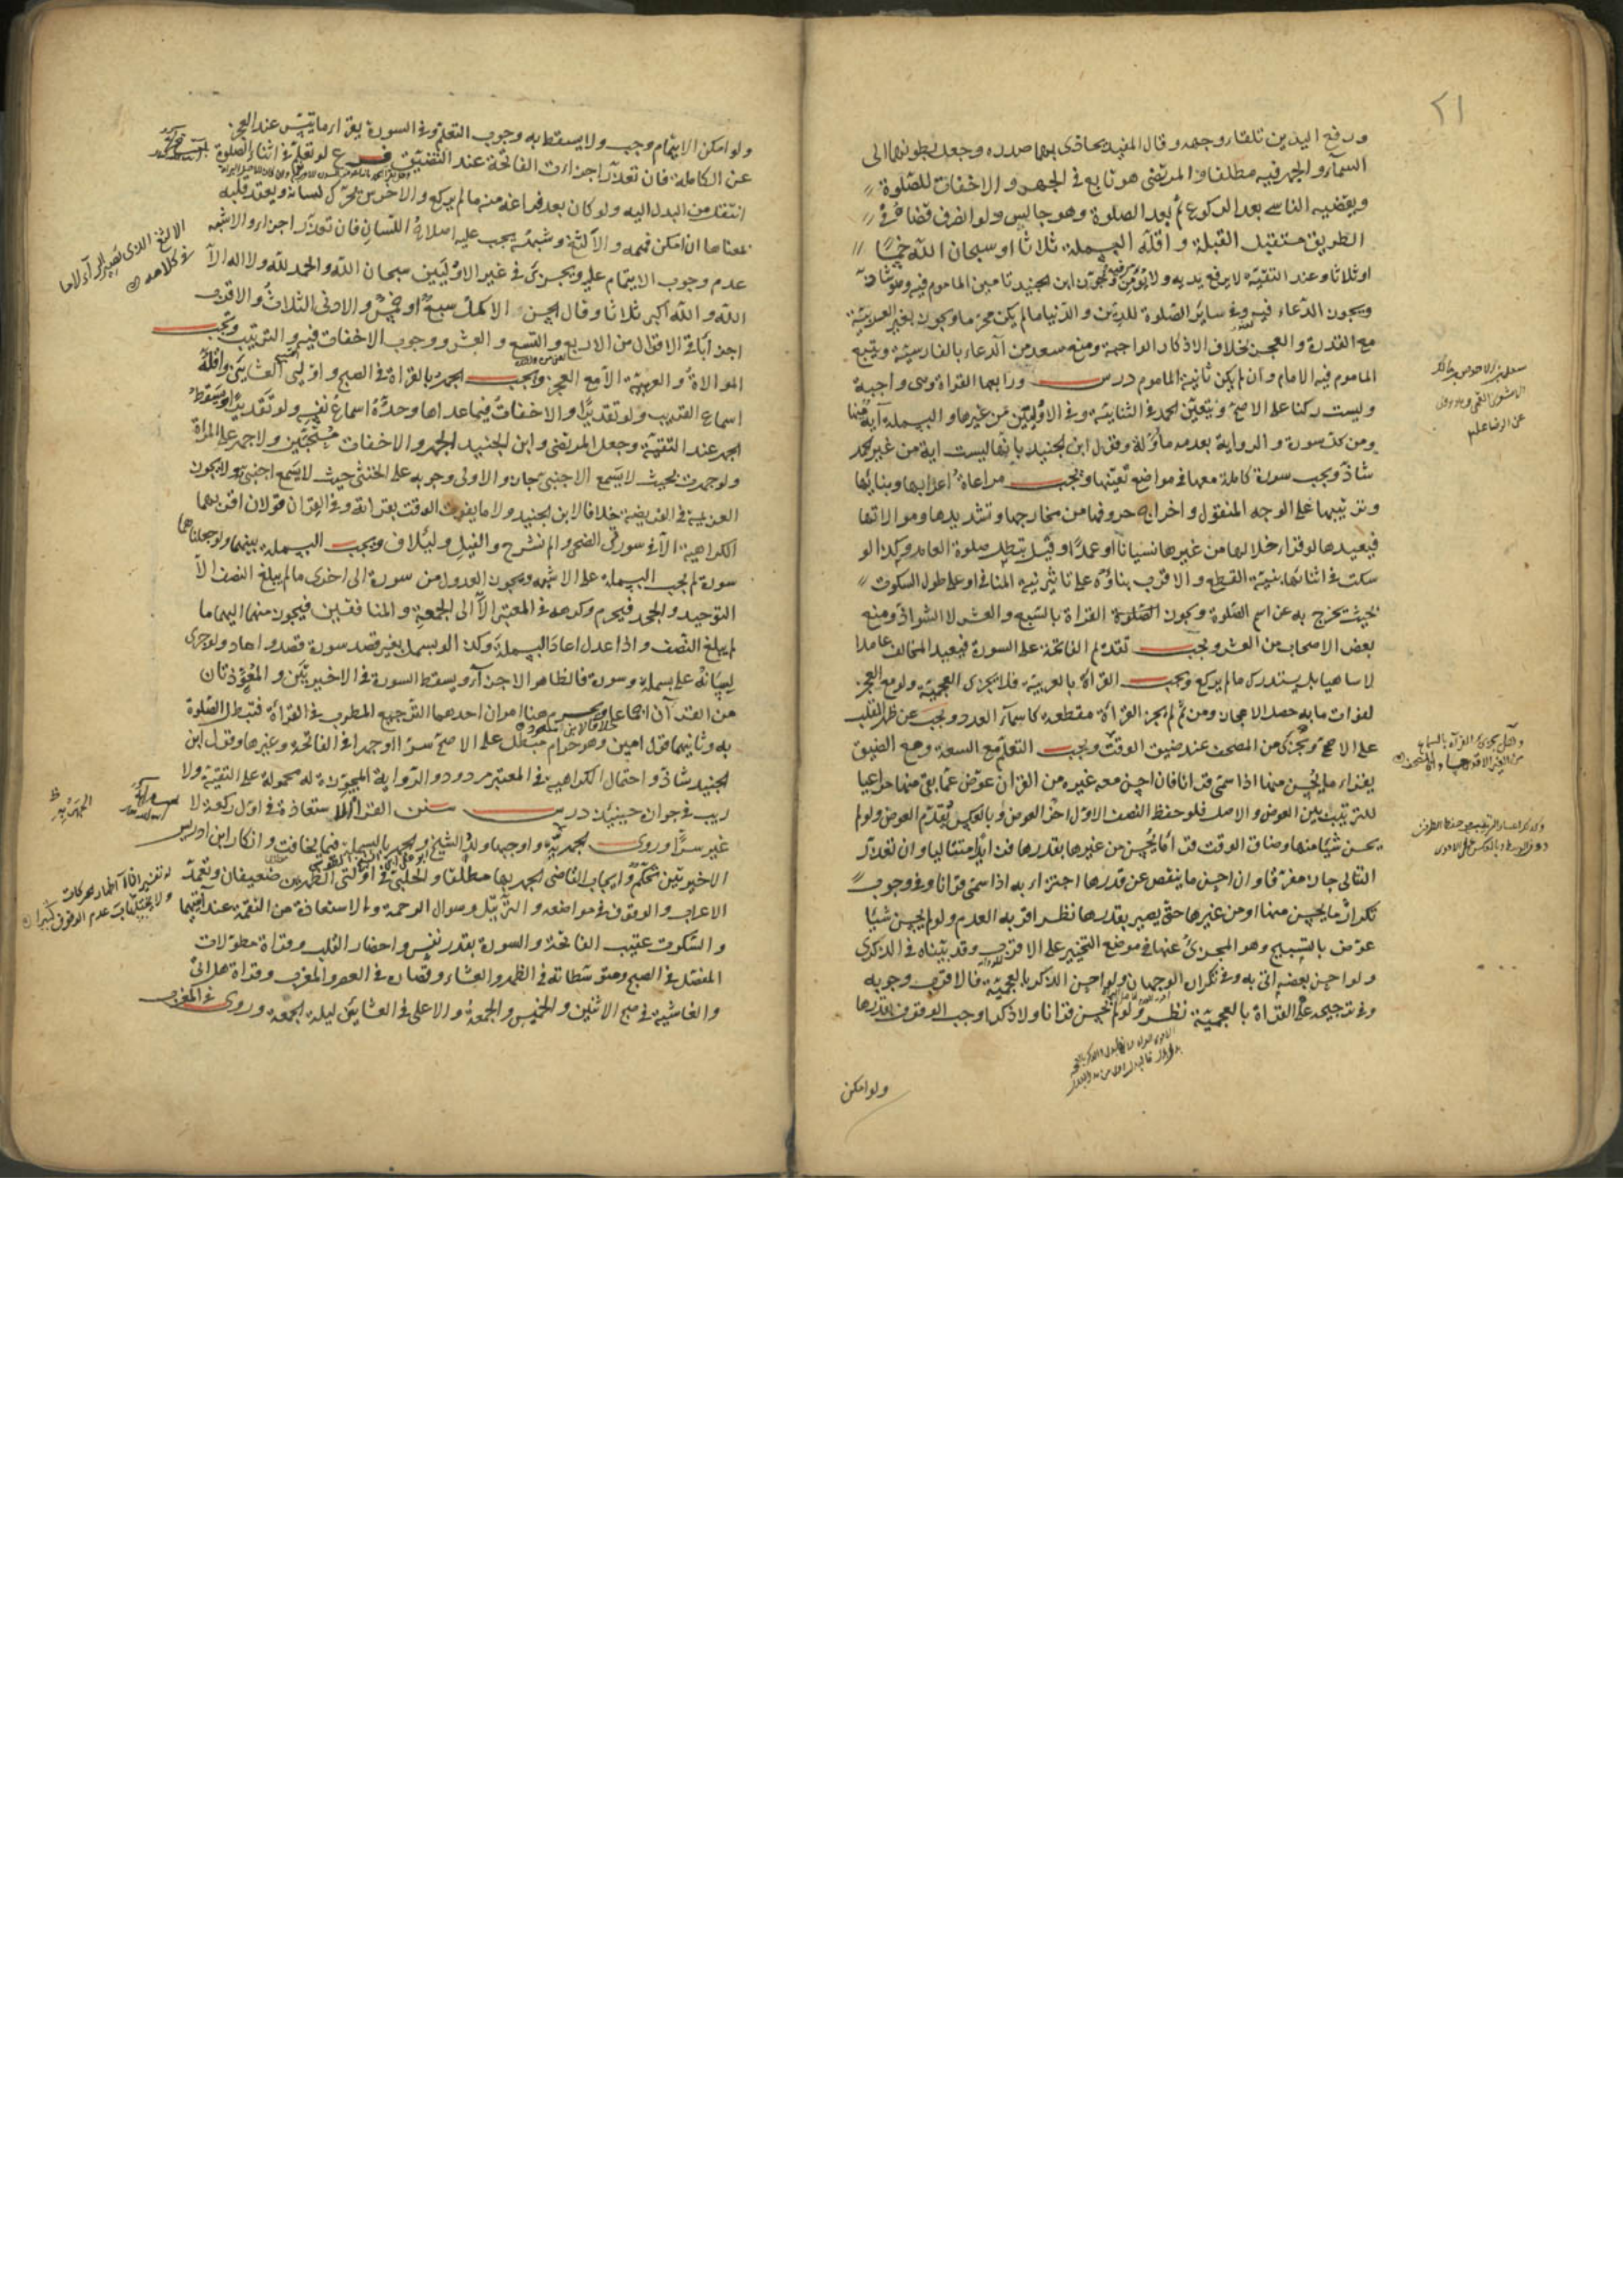 ٢١
ورفع اليدين تلقاء وجهه وقال المفيد يحاذى بهما صدره وجعل بطونهما الى
السماء والجهر فيه مطلقا والمرتضى هو تابع فى الجهر والاخفات للصلوة
ويقضيه الناسى بعد الركوع ثم بعد الصلوة وهو جالس ولو انصرف قضاه فى
الطريق مستقبل القبلة واقله البسملة ثلاثا او سبحان الله خمسا
او ثلاثا وعند التقية لا يرفع يديه ولا يؤمن وجوز ابن الجنيد تامين الماموم فيه وهو شاذ
ويجوز الدعاء فيه وفى سائر الصلوة للدين والدنيا مالم يكن محرما ويجوز بغير العربية
مع القدرة والعجز بخلاف الاذكار الواجبة ومنع سعد من الدعاء بالفارسية ويتبع
الماموم فيه الامام وان لم يكن ثانية الماموم درس ورابعها القراءة وهى واجبة
وليست ركنا على الاصح ويتعين الحمد فى الثنائية وفى الاوليين من غيرها والبسملة آية منها
ومن كل سورة والرواية بعدمه مأولة وقول ابن الجنيد بانها ليست اية من غير الحمد
شاذ ويجب سورة كاملة معها فى مواضع تعينها ويجب مراعاة اعرابها وبنائها
وترتيبها على الوجه المنقول واخراج حروفها من مخارجها وتشديدها وموالاتها
فيعيدها لو قرأ خلالها من غيرها نسيانا او عمدا وقيل تبطل صلوة العامد وكذا لو
سكت فى اثنائها بنية القطع والاقرب بناؤه على تاثير نية المنافى او على طول السكوت
بحيث يخرج به عن اسم الصلوة ويجوز القراة بالسبع والعشر لا الشواذ ومنع
بعض الاصحاب من العشر ويجب تقديم الفاتحة على السورة فيعيد المخالف عامدا
لا ساهيا بل يستدرك مالم يركع ويجب القراءة بالعربية فلا يجزى العجمية ولو مع العجز
لفوات ما به حصل الاعجاز ومن ثم لم يجز القراءة مقطعة كاسماء العدد ويجب عن ظهر القلب
على الاصح ويجزى من المصحف عند ضيق الوقت ويجب التعلم مع السعة ومع الضيق
يقراء ما يحسن منها اذا سمى قرانا فان احسن معه غيره من القران عوض عما بقى منها مراعيا
للترتيب بين العوض والاصل فلو حفظ النصف الاول اخر العوض وبالعكس يقدم العوض ولو لم
يحسن شيئا منها وضاق الوقت قرأ ما يحسن من غيرها بقدرها فزايدا متتاليا وان تعذر
التتالى جاز مفرقا وان احسن ما ينقص عن قدرها اجتزاء به اذا سمى قرانا وفى وجوب
تكرار ما يحسن منها او من غيرها حتى يصير بقدرها نظر اقربه العدم ولو لم يحسن شيئا
عوض بالتسبيح وهو المجزئ عنها فى موضع التخيير على الاقرب وقد بيناه فى الذكرى
ولو احسن بعضه اتى به وفى تكراره الوجهان ولو احسن الذكر بالعجمية فالاقرب وجوبه
وفى ترجيحه على القراة بالعجمية نظر ولو لم يحسن قرانا ولا ذكرا وجب الوقوف بقدرها
ولو امكن
ولو امكن الايتمام وجب ولا يسقط به وجوب التعلم وفى السورة يقراء ما تيسر عند العجز
عن الكاملة فان تعذر اجزاءت الفاتحة عند التضيق فرع لو تعلم فى اثناء الصلوة
انتقل من البدل اليه ولو كان بعد فراغه منه مالم يركع والاخرس يحرك لسانه ويعقد قلبه
بمعناها ان امكن فهمه والالثغ وشبهه يجب عليه اصلاح اللسان فان تعذر اجزاء والاشبه
عدم وجوب الايتمام عليه ويجزى فى غير الاوليين سبحان الله والحمد لله ولا اله الا
الله والله اكبر ثلاثا وقال الحسن الاكمل سبع او خمس والادنى الثلاث والاقرب
اجزاء باقى الاقوال من الاربع والتسع والعشر ووجوب الاخفات فيه والترتيب ويجب
الموالاة والعربية الا مع العجز ويجب الجهر بالقراة فى الصبح واوليى العشائين واقله
اسماع القريب ولو تقديرا والاخفات فيما عداها وحده اسماع نفسه ولو تقديرا ويسقط
الجهر عند التقية وجعل المرتضى وابن الجنيد الجهر والاخفات مستحبين ولا جهر على المرأة
ولو جهرت بحيث لا يسمع الاجنبى جاز والاولى وجوبه على الخنثى حيث لا يسمع اجنبى ولا يجوز
العزيمة فى الفريضة خلافا لابن الجنيد ولا ما يفوت الوقت بقراته وفى القران قولان اقربهما
الكراهية الا فى سورتى الضحى والم نشرح والفيل ولئيلاف ويجب البسملة بينهما ولو جعلناهما
سورة لم يجب البسملة على الاشبه ويجوز العدول من سورة الى اخرى مالم يبلغ النصف الا
التوحيد والجحد فيحرم وكرهه فى المعتبر الا الى الجمعة والمنافقين فيجوز منهما اليهما ما
لم يبلغ النصف واذا عدل اعاد البسملة وكذا لو بسمل بغير قصد سورة قصد واعاد ولو جرى
لسانه على بسملة وسورة فالظاهر الاجزاء ويسقط السورة فى الاخيرتين والمعوذتان
من القرآن اجماعا ويحرم هنا امران احدهما الترجيع المطرب فى القراءة فتبطل الصلوة
خلافا لابن مسعود
به وثانيهما قول امين وهو حرام مبطل على الاصح سرا او جهرا فى الفاتحة وغيرها وقول ابن
الجنيد شاذ واحتمال الكراهية فى المعتبر مردود والرواية المجوزة له محمولة على التقية ولا
ريب فى جوازه حينئذ درس سنن القراءة الاستعاذة فى اول ركعة لا
غير سرا وروى الجهر والجهر بالبسملة فيما يخافت وانكار ابن ادريس
الاخيرتين تحكم وايجاب القاضى الجهر بها مطلقا والحلبى فى اولتى الظهرين ضعيفان وتعمد
الاعراب والوقوف فى مواضعه والترتيل وسوال الرحمة والاستعاذة من النقمة عند آيتيهما
والسكوت عقيب الفاتحة والسورة بقدر نفس واحضار القلب وقراة مطولات
المفصل فى الصبح ومتوسطاته فى الظهر والعشاء وقصاره فى العصر والمغرب وقراة هل اتى
والغاشية فى صبح الاثنين والخميس والجمعة والاعلى فى العشائين ليلة الجمعة وروى فى المغرب